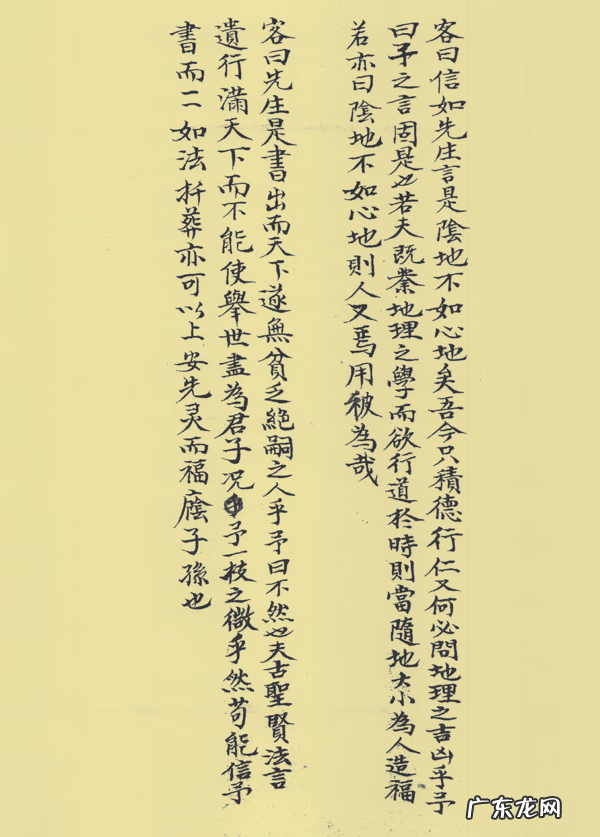 客曰信如先生言是陰地不如心地矣吾今只積德行仁又何必問地理之吉凶乎予
曰予之言固是也若夫既業地理之學而欲行道於時則當隨地大小為人造福
若亦曰陰地不如心地則人又焉用被為哉
客曰先生是書出而天下遂無貧乏絕嗣之人乎予曰不然也夫古聖賢法言
遺行滿天下而不能使舉世盡為君子况予一枝之微乎然苟能信予
書而一二如法扦葬亦可以上安先灵而福廕子孫也
广东龙网